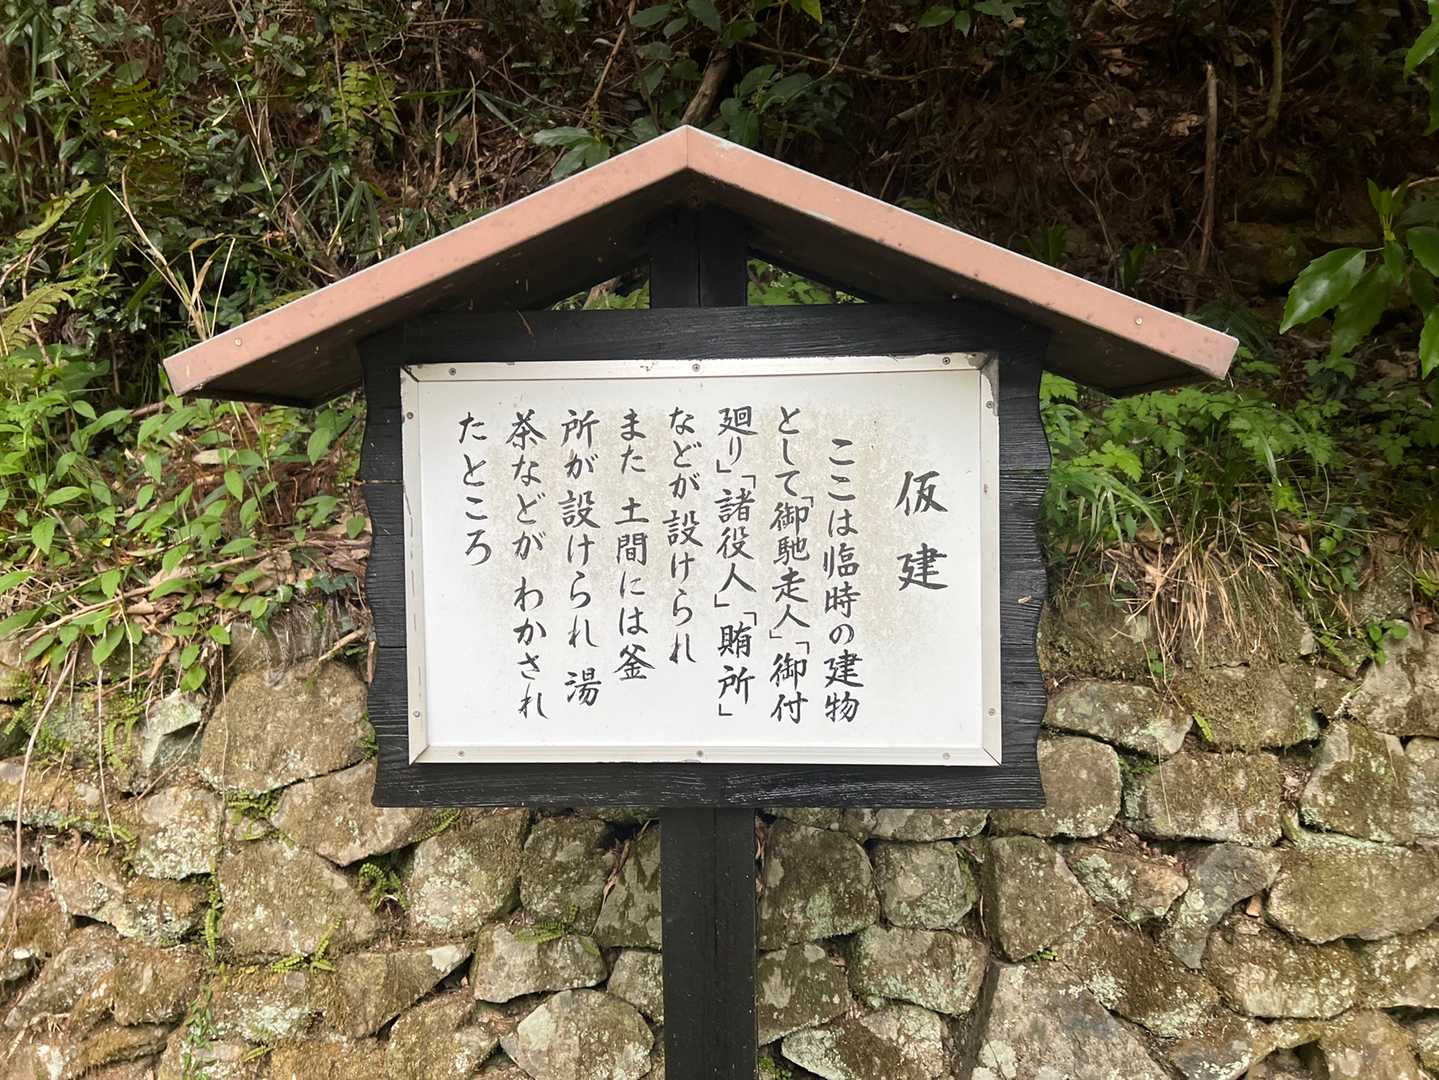 仮建
ここは臨時の建物
として「御馳走人」「御付
廻り」「諸役人」「賄所」
などが設けられ
また 土間には釜
所が設けられ 湯
茶などが わかされ
たところ